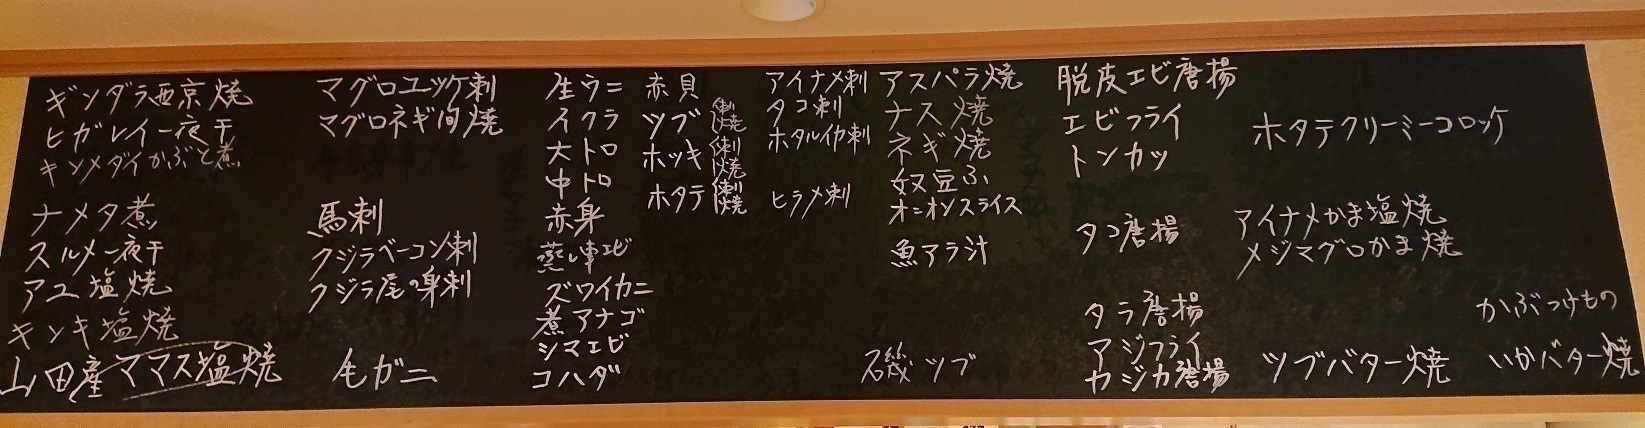 ギンダラ西京焼
ヒガレイ一夜干
キンメダイかぶと煮
ナメタ煮
スルメ一夜干
アユ塩焼
キンキ塩焼
山田産ママス塩焼
マグロユッケ刺
マグロネギ間焼
馬刺
クジラベーコン刺
クジラ尾の身刺
毛ガニ
生ウニ
イクラ
大トロ
中トロ
赤身
蒸し車エビ
ズワイカニ
煮アナゴ
シマエビ
コハダ
赤貝
ツブ 刺 焼
ホッキ 刺 焼
ホタテ 刺 焼
アイナメ刺
タコ刺
ホタルイカ刺
ヒラメ刺
アスパラ焼
ナス焼
ネギ焼
奴豆ふ
オニオンスライス
魚アラ汁
磯ツブ
脱皮エビ唐揚
エビフライ
トンカツ
タコ唐揚
タラ唐揚
アジフライ
カジカ唐揚
ホタテクリーミーコロッケ
アイナメかま塩焼
メジマグロかま焼
ツブバター焼
かぶつけもの
いかバター焼